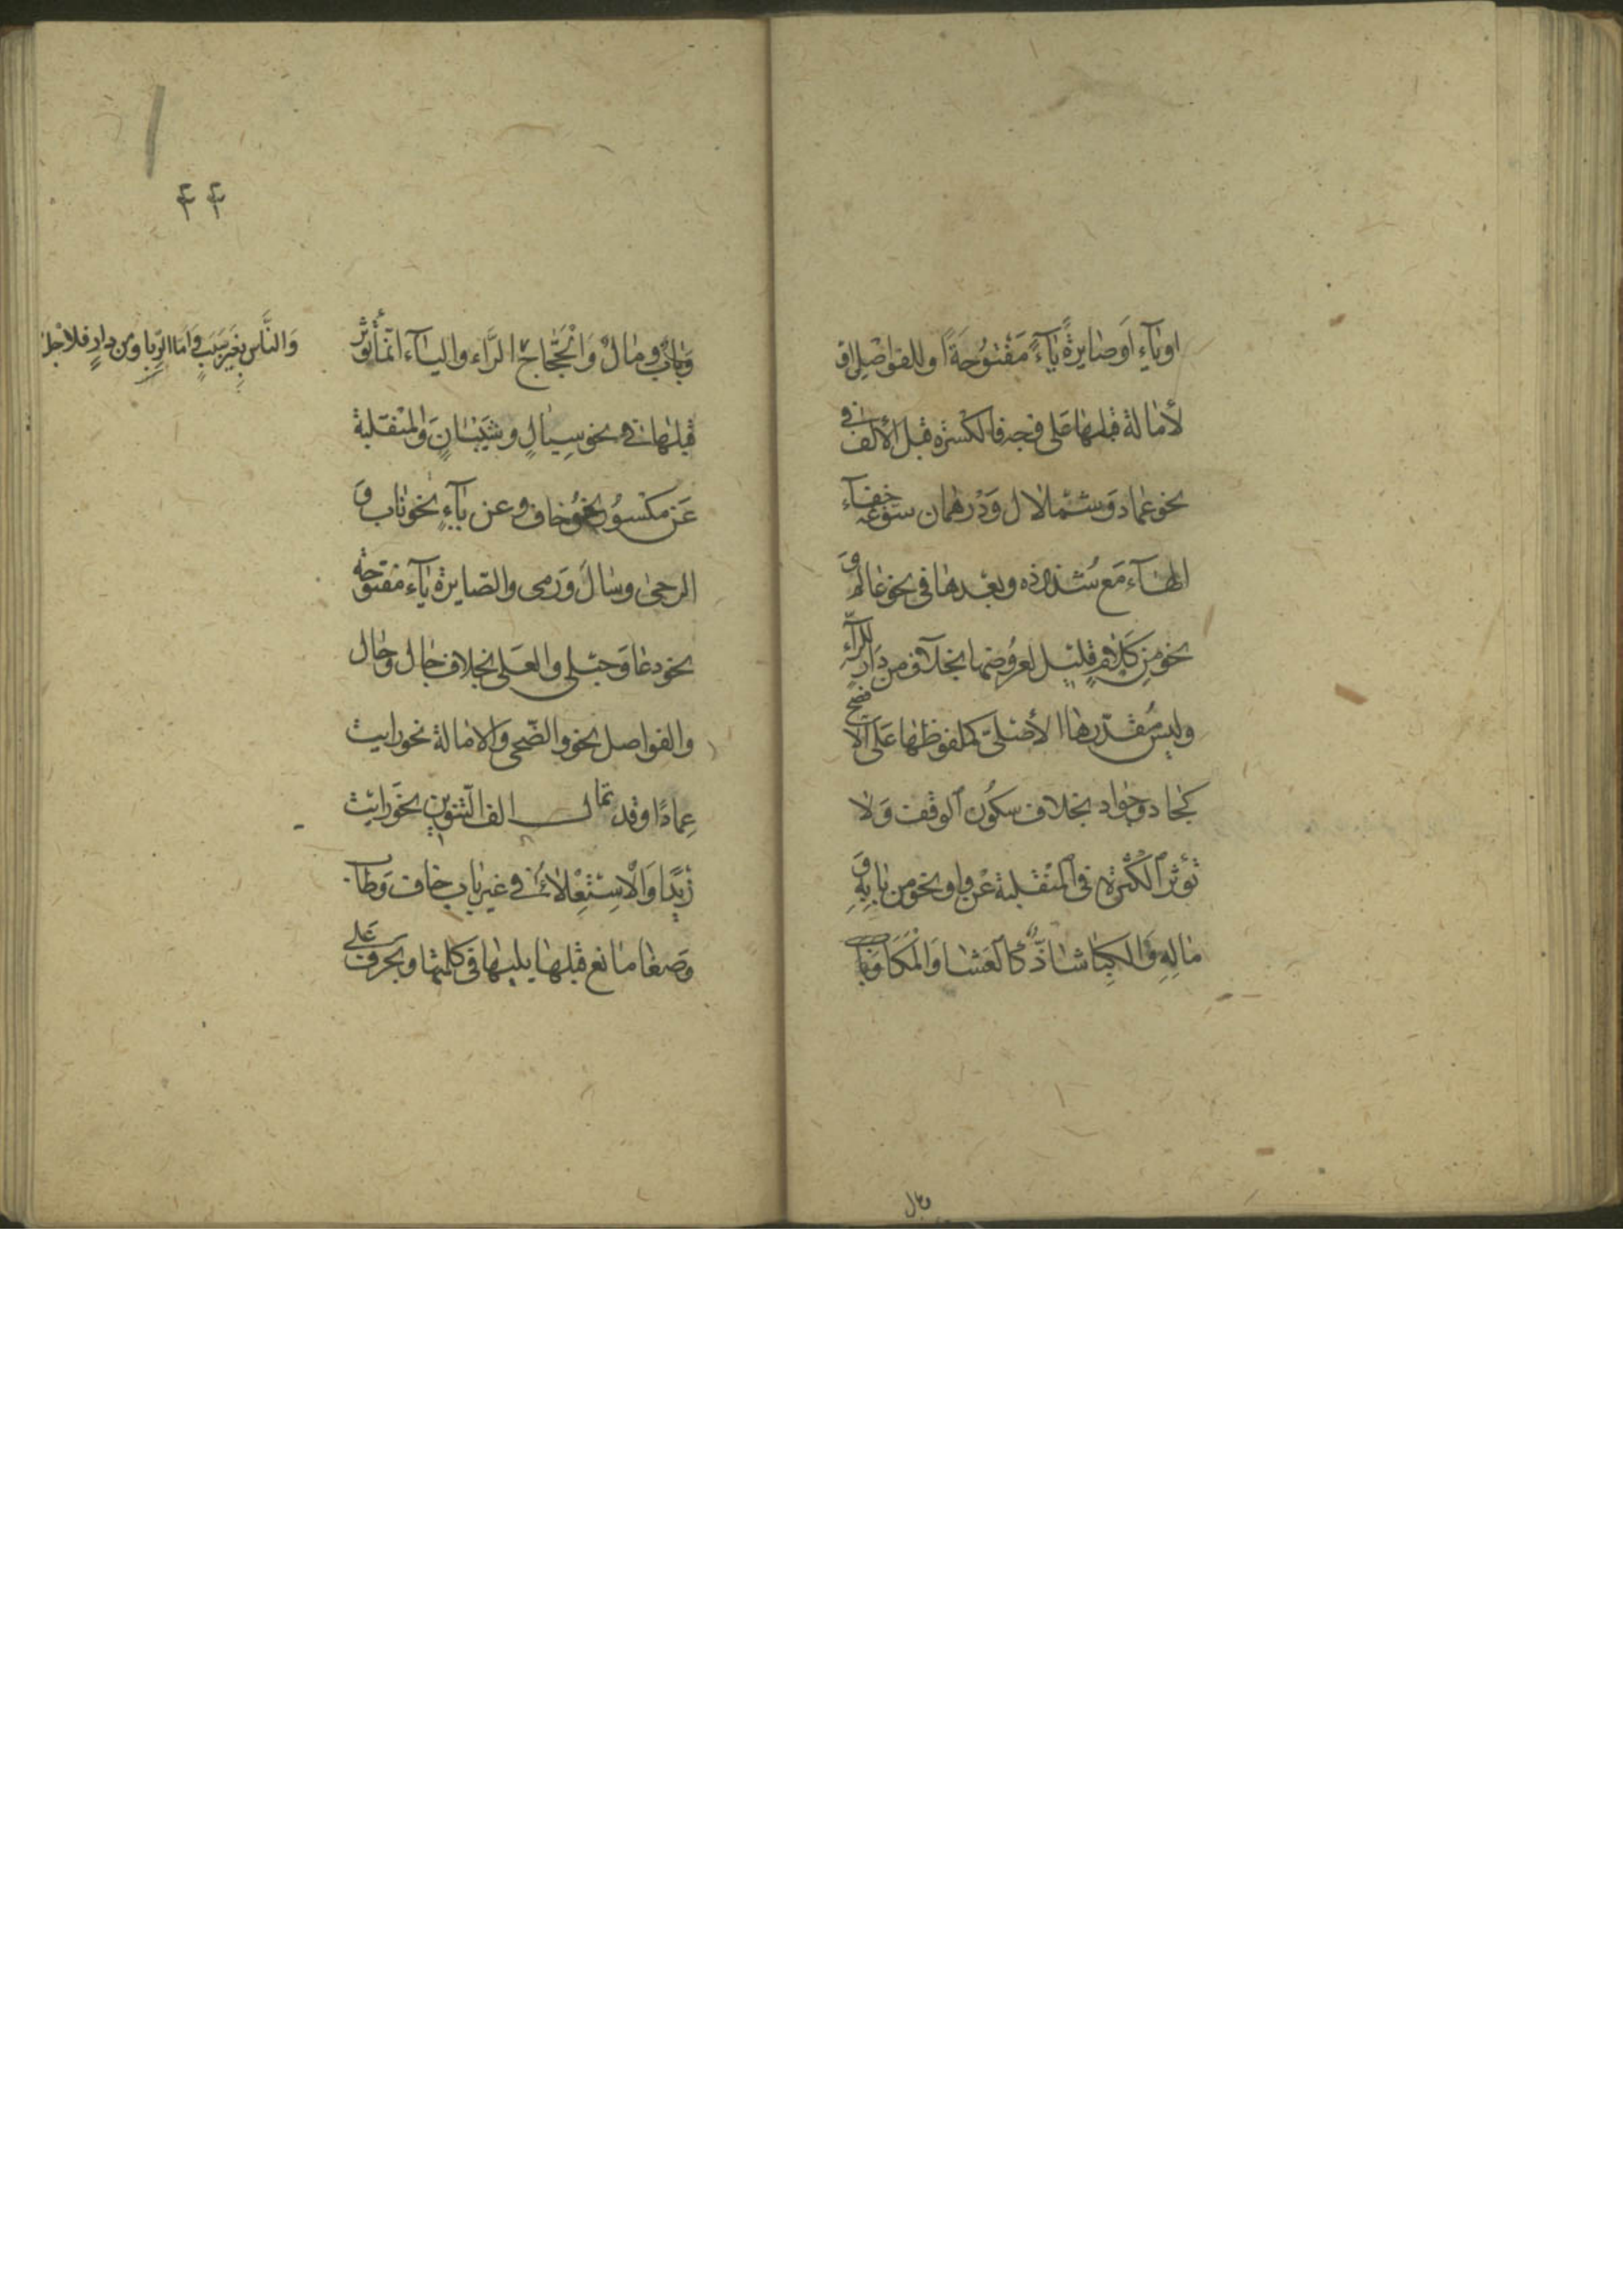 اوياءٍ اَوصَايرةً يَاءً مَفْتُوُحَةً اوللفواصْلِ او
لأمَالة قبلهَا عَلى وَجهٍ فالكسْرة قبل الألف في
نحو عمادوَشمْلال وَدْرهمان سَوّغه خفاء
الهَاءَ مَع شذوذه وبعْدهَا في نحو عَالم وَ
نحو مِن كَلامٍ قليل لعرُوضهَا بخلاف من دَارٍ للراءِ
وليسَ مُقدّرهَا الأصْلىّ كملفوظهَا عَلى الأفصح
كجادّ وَجَوادّ بخلاف سكُون الوقف وَلا
تؤثر الكسْرة في المنْقلبة عْن واوٍ نحو من بَابِهِ وَ
مَالِهِ وَالكِبَا شاذّ كالعَشا وَالمكَا وَبَا
وَبَابٌ وَمَالٌ وَالْحَجَّاج الرَّاء والياء انّما تُؤثر
قبلهَا في نحو سِيَالٍ وشَيْبَانٍ وَالمنْقلبة
عَن مكْسوُرٍ نحو خَاف وعن يَاءٍ نحو نَاب وَ
الرحىٰ وسَالَ وَرَمى والصّايرة يَاء مفتوحَة
نحو دعَا وَحبْلى والعلى بخلاف جَال وحَال
والفواصل نحو والضّحى وَالامالة نحو رايت
عِمادًا وقد تمال الف التنوين نحوَ رايت
زَيْدًا وَالْاسْتعْلاء في غير باب خاف وَطَاب
وَصَغَا مَانع قبلهَا يليهَا في كلمتهَا وبحرف على
وَالنَّاس بغَير سَبَبٍ وَامّا الرِّبَا ومن دارٍ فلاجل
وبَال
۴۴